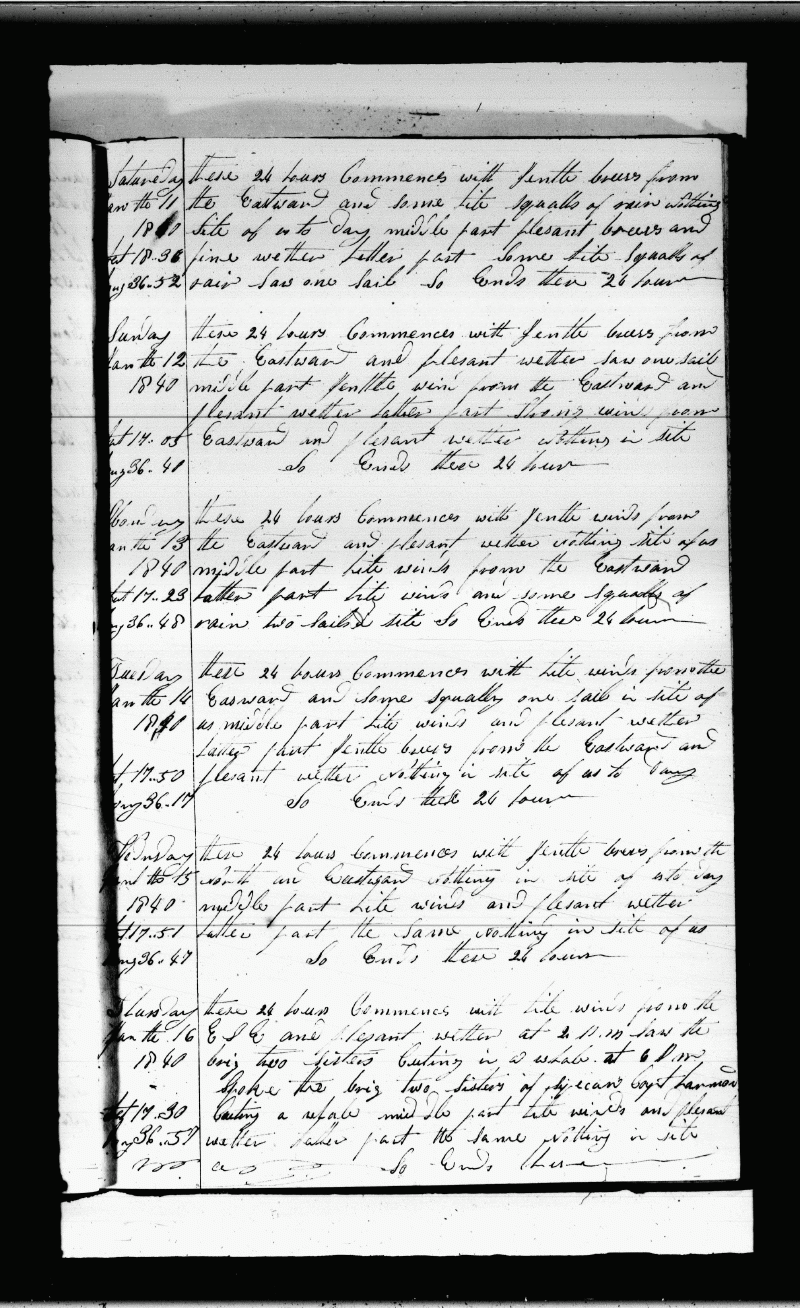 Saturday these 24 hours Commences with Jentle brees from
Jan the 11 the Eastward and some lite squalls of rain Nothing
1840 site of us to day middle part plesant breeses and
Lat 18-36 fine wether Latter part Some lite Squalls of
Long 36-52 rain Saw one Sail So Ends these 24 hours
Sunday these 24 hours Commences with Jentle brees from
Jan the 12 the Eastward and plesant wether saw one sail
1840 middle part Jentle wind from the Eastward and
plesant wether Latter part Strong wind from
Lat 17-05 Eastward and plesant wether Nothing in site
Long 36-40 So Ends these 24 hours
Monday these 24 hours Commences with Jentle winds from
Jan the 13 the Eastward and plesant wether Nothing site of us
1840 middle part Lite winds from the Eastward
Lat 17-23 Latter part Lite winds and some Squalls of
Long 36-48 rain two Sails site So Ends these 24 hours
Tuesday these 24 hours Commences with Lite winds from the
Jan the 14 Easward and some squally one sail in site of
1840 us middle part Lite winds and plesant wether
Latter part Jentle brees from the Eastward and
Lat 17-50 plesant wether Nothing in site of us to Day
Long 36-17 So Ends these 24 hours
Wednsday these 24 hours Commences with Jentle brees from the
Jan the 15 North and Eastward Nothing in site of us to day
1840 middle part Lite winds and plesant wether
Lat 17-51 Latter part the Same Nothing in site of us
Long 36-47 So Ends these 24 hours
Thursday these 24 hours Commences with lite winds from the
Jan the 16 E S E and plesant wether at 2 P.m Saw the
1840 brig two Sisters Cuting in a whale at 6 P.m
Spoke the brig two Sisters of Capt
Lat 17-30 a whale middle part lite winds and plesant
Long 36-57 wether Latter part the same Nothing in site
So Ends these